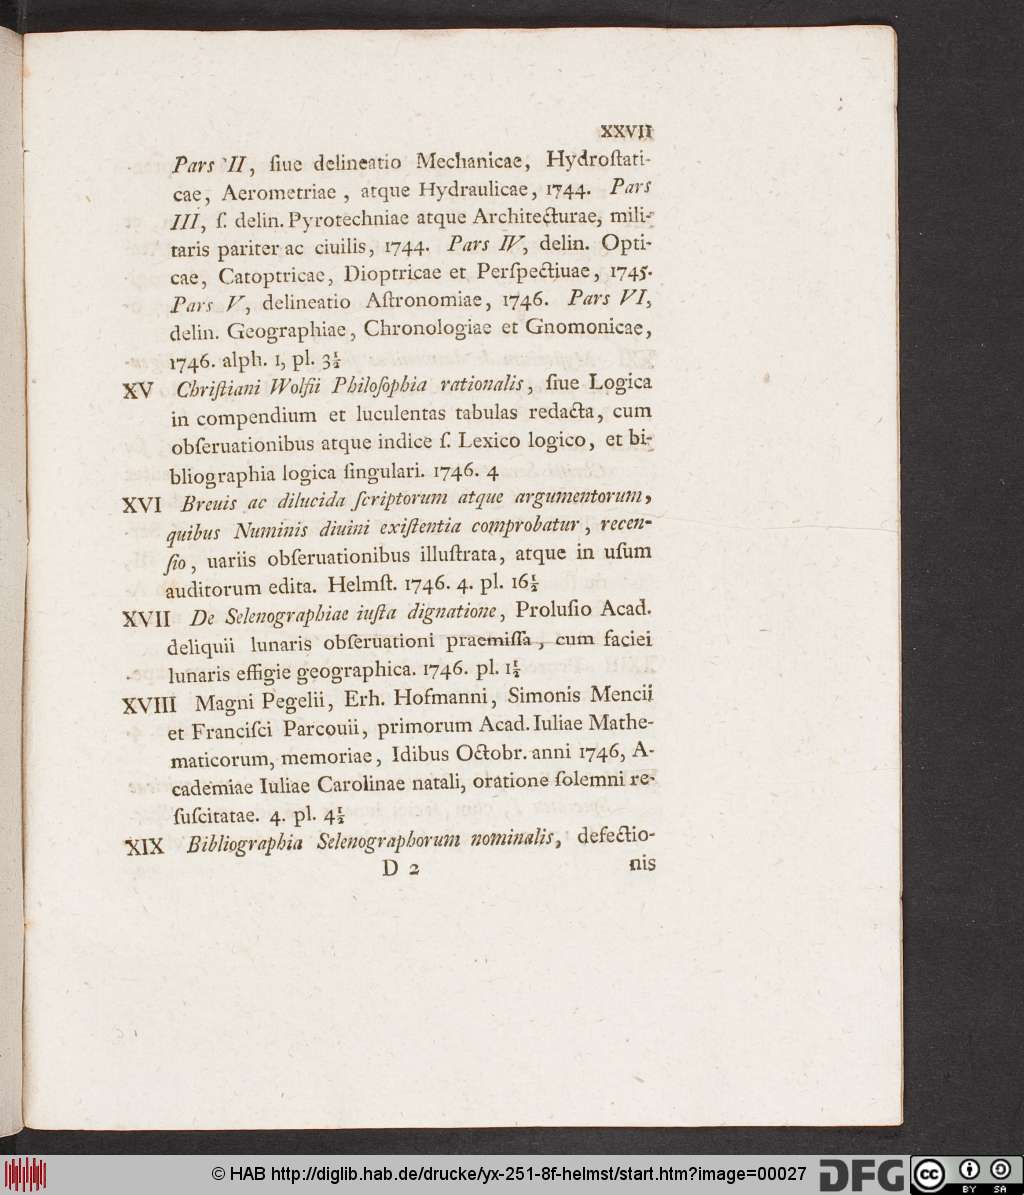 XXVII
Pars II, ſiue delineatio Mechanicae, Hydroſtati-
cae, Aerometriae, atque Hydraulicae, 1744. Pars
III, ſ. delin. Pyrotechniae atque Architecturae, mili-
taris pariter ac ciuilis, 1744. Pars IV, delin. Opti-
cae, Catoptricae, Dioptricae et Perſpectiuae, 1745.
Pars V, delineatio Aſtronomiae, 1746. Pars VI,
delin. Geographiae, Chronologiae et Gnomonicae,
1746. alph. 1, pl. 3½
XV Chriſtiani Wolfii Philoſophia rationalis, ſiue Logica
in compendium et luculentas tabulas redacta, cum
obſeruationibus atque indice ſ. Lexico logico, et bi-
bliographia logica ſingulari. 1746. 4
XVI Breuis ac dilucida ſcriptorum atque argumentorum,
quibus Numinis diuini exiſtentia comprobatur, recen-
ſio, uariis obſeruationibus illuſtrata, atque in uſum
auditorum edita. Helmſt. 1746. 4. pl. 16½
XVII De Selenographiae iuſta dignatione, Proluſio Acad.
deliquii lunaris obſeruationi praemiſſa, cum faciei
lunaris effigie geographica. 1746. pl. 1½
XVIII Magni Pegelii, Erh. Hofmanni, Simonis Mencii
et Franciſci Parcouii, primorum Acad. Iuliae Mathe-
maticorum, memoriae, Idibus Octobr. anni 1746, A-
cademiae Iuliae Carolinae natali, oratione ſolemni re-
ſuſcitatae. 4. pl. 4½
XIX Bibliographia Selenographorum nominalis, defectio-
D 2 nis
© HAB http://diglib.hab.de/drucke/yx-251-8f-helmst/start.htm?image=00027
DFG
cc BY SA